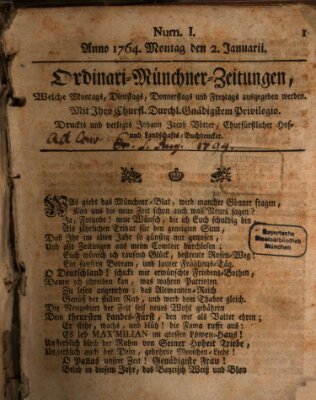 Num. I.
1
Anno 1764. Montag den 2. Januarii.
Ordinari-Münchner-Zeitungen,
Welche Montags, Dienstags, Donnerstags und Freytags ausgegeben werden.
Mit Ihro Churfl. Durchl. Gnädigstem Privilegio.
Druckts und verlegts Johann Jacob Vötter, Churfürstlicher Hof-
und Landschafts-Buchdrucker.
Was giebt das Münchner-Blat, wird mancher Gönner fragen,
Nun uns die neue Zeit schon auch was Neues sagen?
Ja, Freunde! neue Wünsch, die ich Euch schuldig bin
Als jährlichen Tribut für den geneigten Sinn,
Daß Ihr im alten Jahr so günstig mir gewesen,
Und alle Zeitungen aus mein Comtoir durchlesen
Euch wünsch ich tausend Glük, bestreute Rosen-Weg:
Ein sanftes Boreum, und lauter Frühlings-Täg.
O Deutschland! schicke mir erwünschte Friedens-Bothen,
Damit ich schreiben kan, was wahren Patrioten
Zu lesen angenehm: das Alemannien-Reich
Genüß der stillen Ruh, und werd dem Thabor gleich.
Die Neugeburt der Zeit soll neues Wohl gewähren
Dem theursten Landes-Fürst, den wir als Vatter ehren;
Er stehe, wachs, und blüh! die Fama ruffe aus:
Es leb MAXMILIAN im grossen Löwen-Haus!
Unsterblich bleib der Ruhm von Seiner Hoheit Triebe,
Unzerblich auch der Dein, gebohrne Menschen-Liebe!
O Pallas unsrer Zeit! Gnädigste Frau!
Bleib in diesem Jahr, das Bayrisch Weiß und Blau
Bayerische
Staatsbibliothek
München